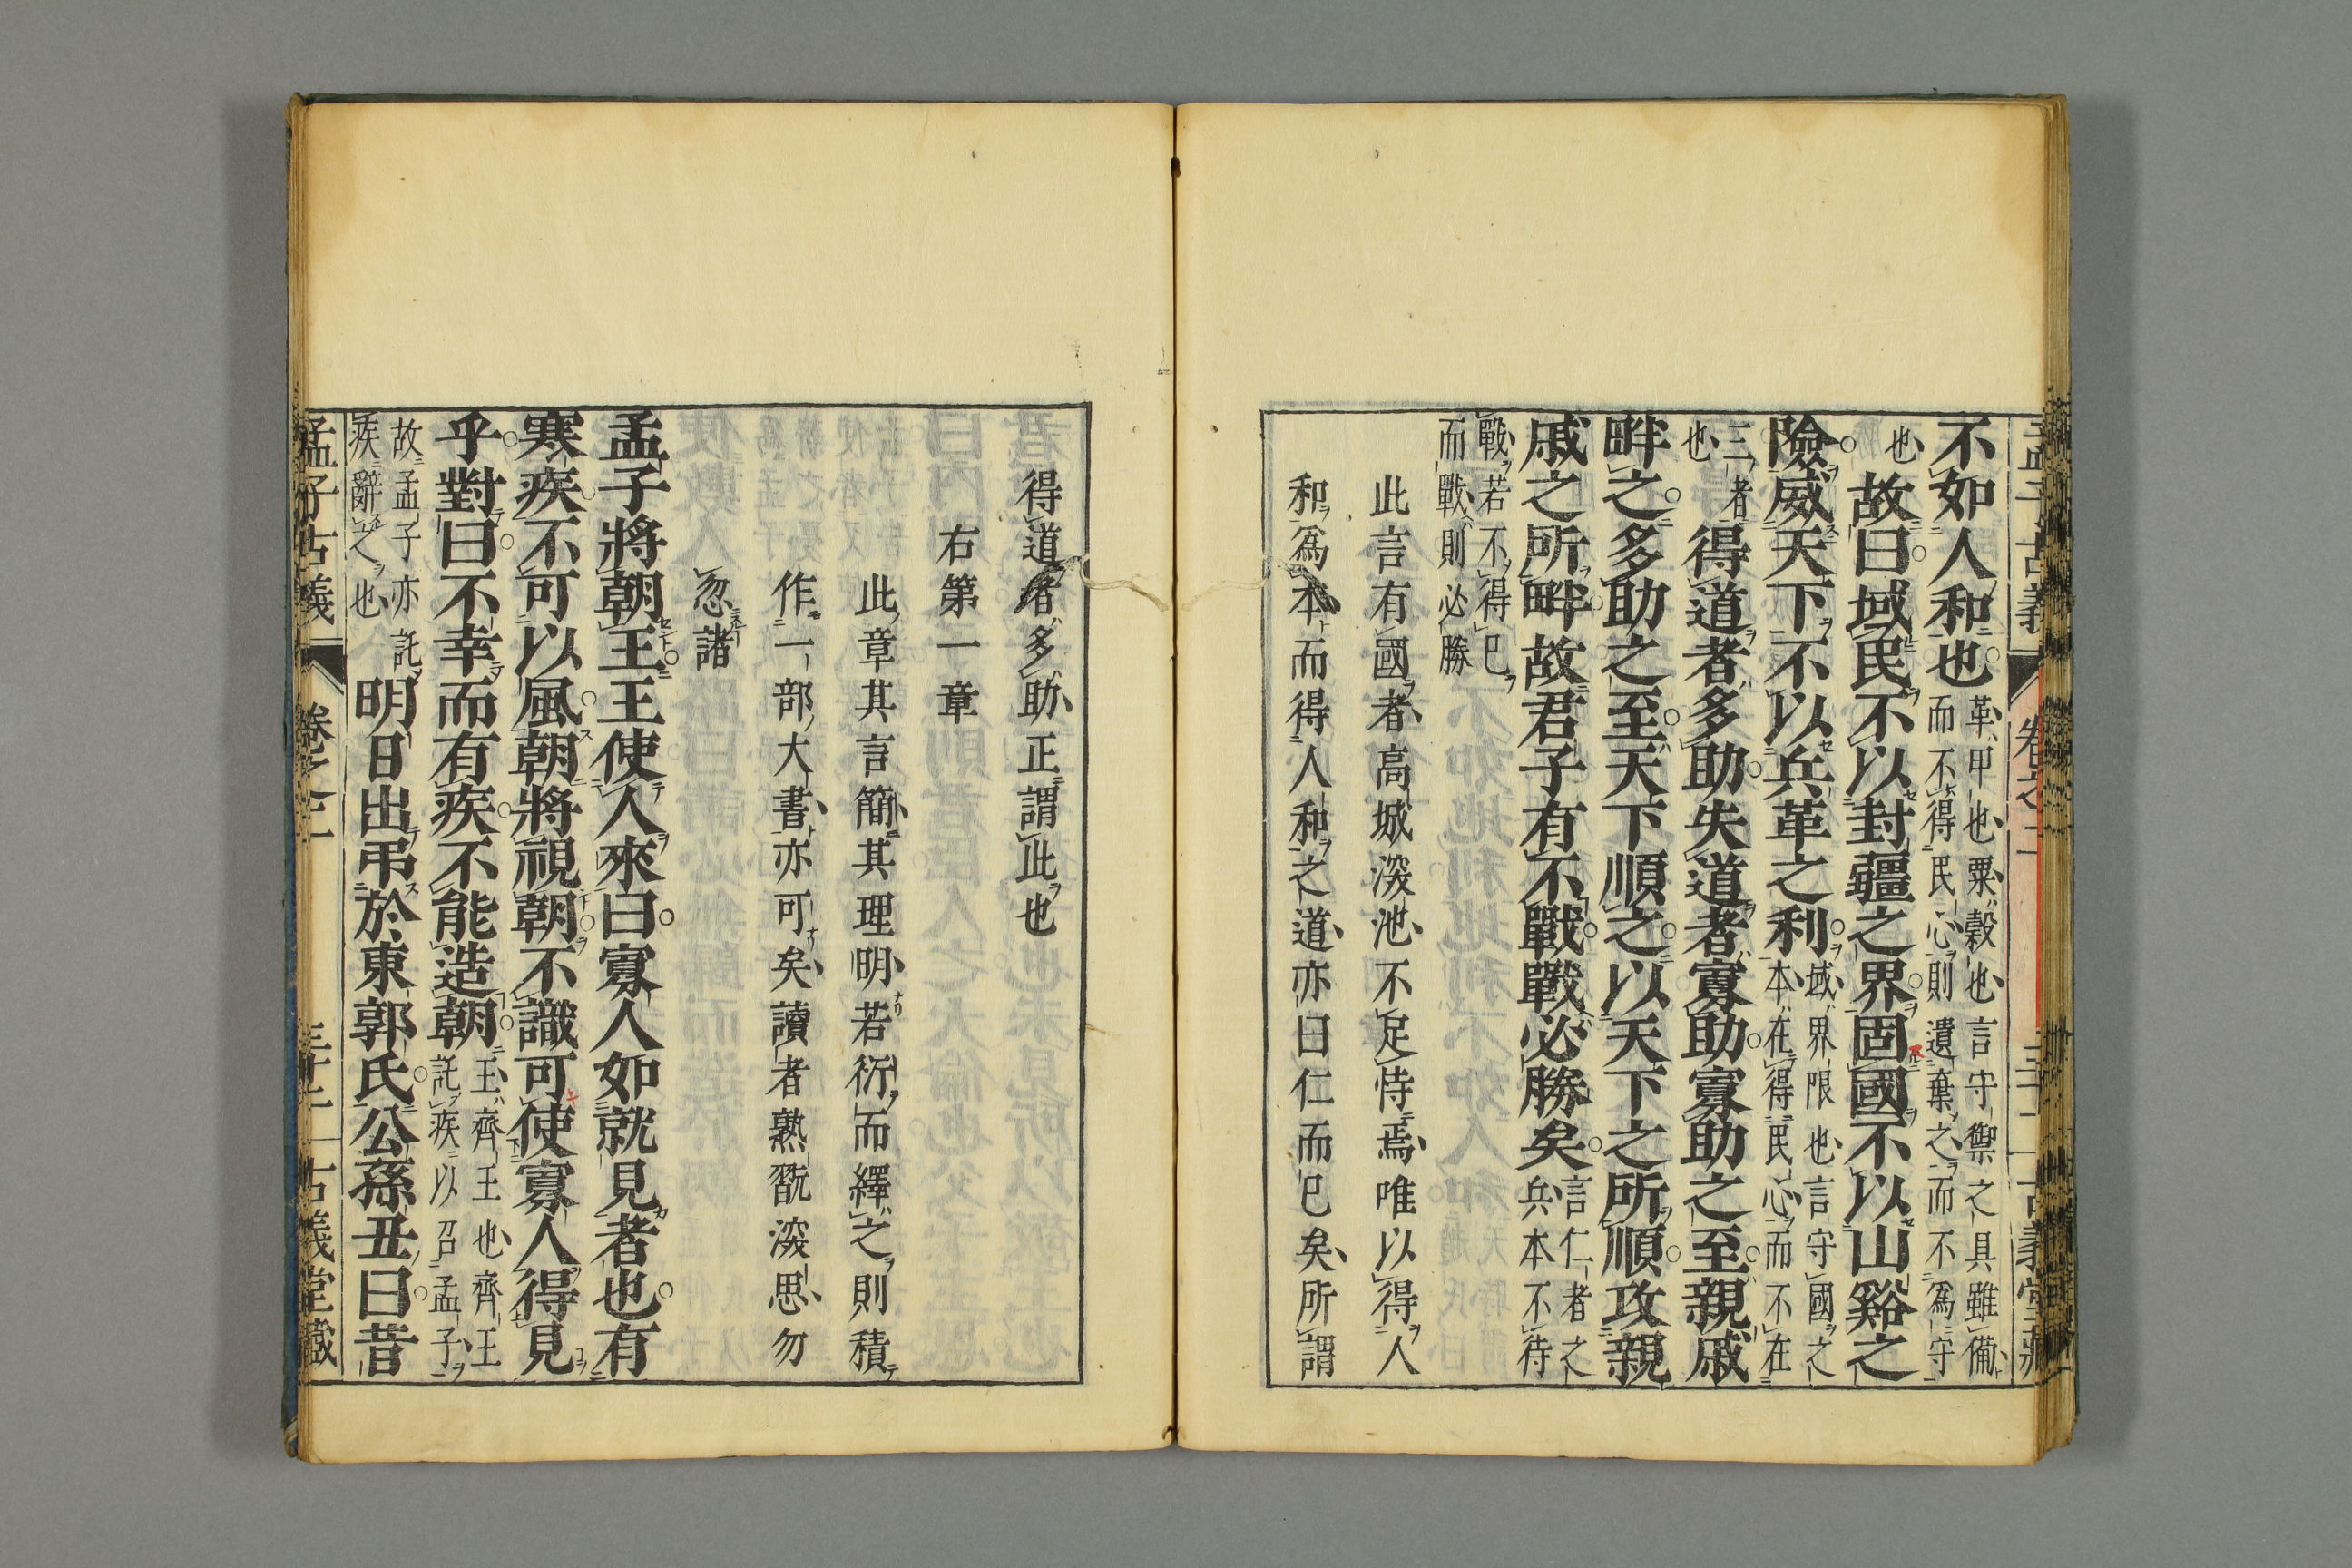 不如人和也革甲也粟穀也言守禦之具雖備
而不得民心則遺棄之而不為守
也故曰域民不以封疆之界固國不以山谿之
險威天下不以兵革之利域界限也言守國之
本在得民心而不在
三者
也得道者多助失道者寡助寡助之至親戚
畔之多助之至天下順之以天下之所順攻親
戚之所畔故君子有不戰戰必勝矣言仁者之
兵本不待
戰若不得已
而戰則必勝
此言有國者高城深池不足恃焉唯以得人
和為本而得人和之道亦曰仁而已矣所謂
得道者多助正謂此也
右第一章
此章其言簡其理明若衍而繹之則積
作一部大書亦可矣讀者熟翫深思勿
忽諸
孟子將朝王王使人來曰寡人如就見者也有
寒疾不可以風朝將視朝不識可使寡人得見
乎對曰不幸而有疾不能造朝王齊王也齊王
託疾以召孟子
故孟子亦託
疾辭之也明日出弔於東郭氏公孫丑曰昔
孟子古義 卷之二 古義堂藏